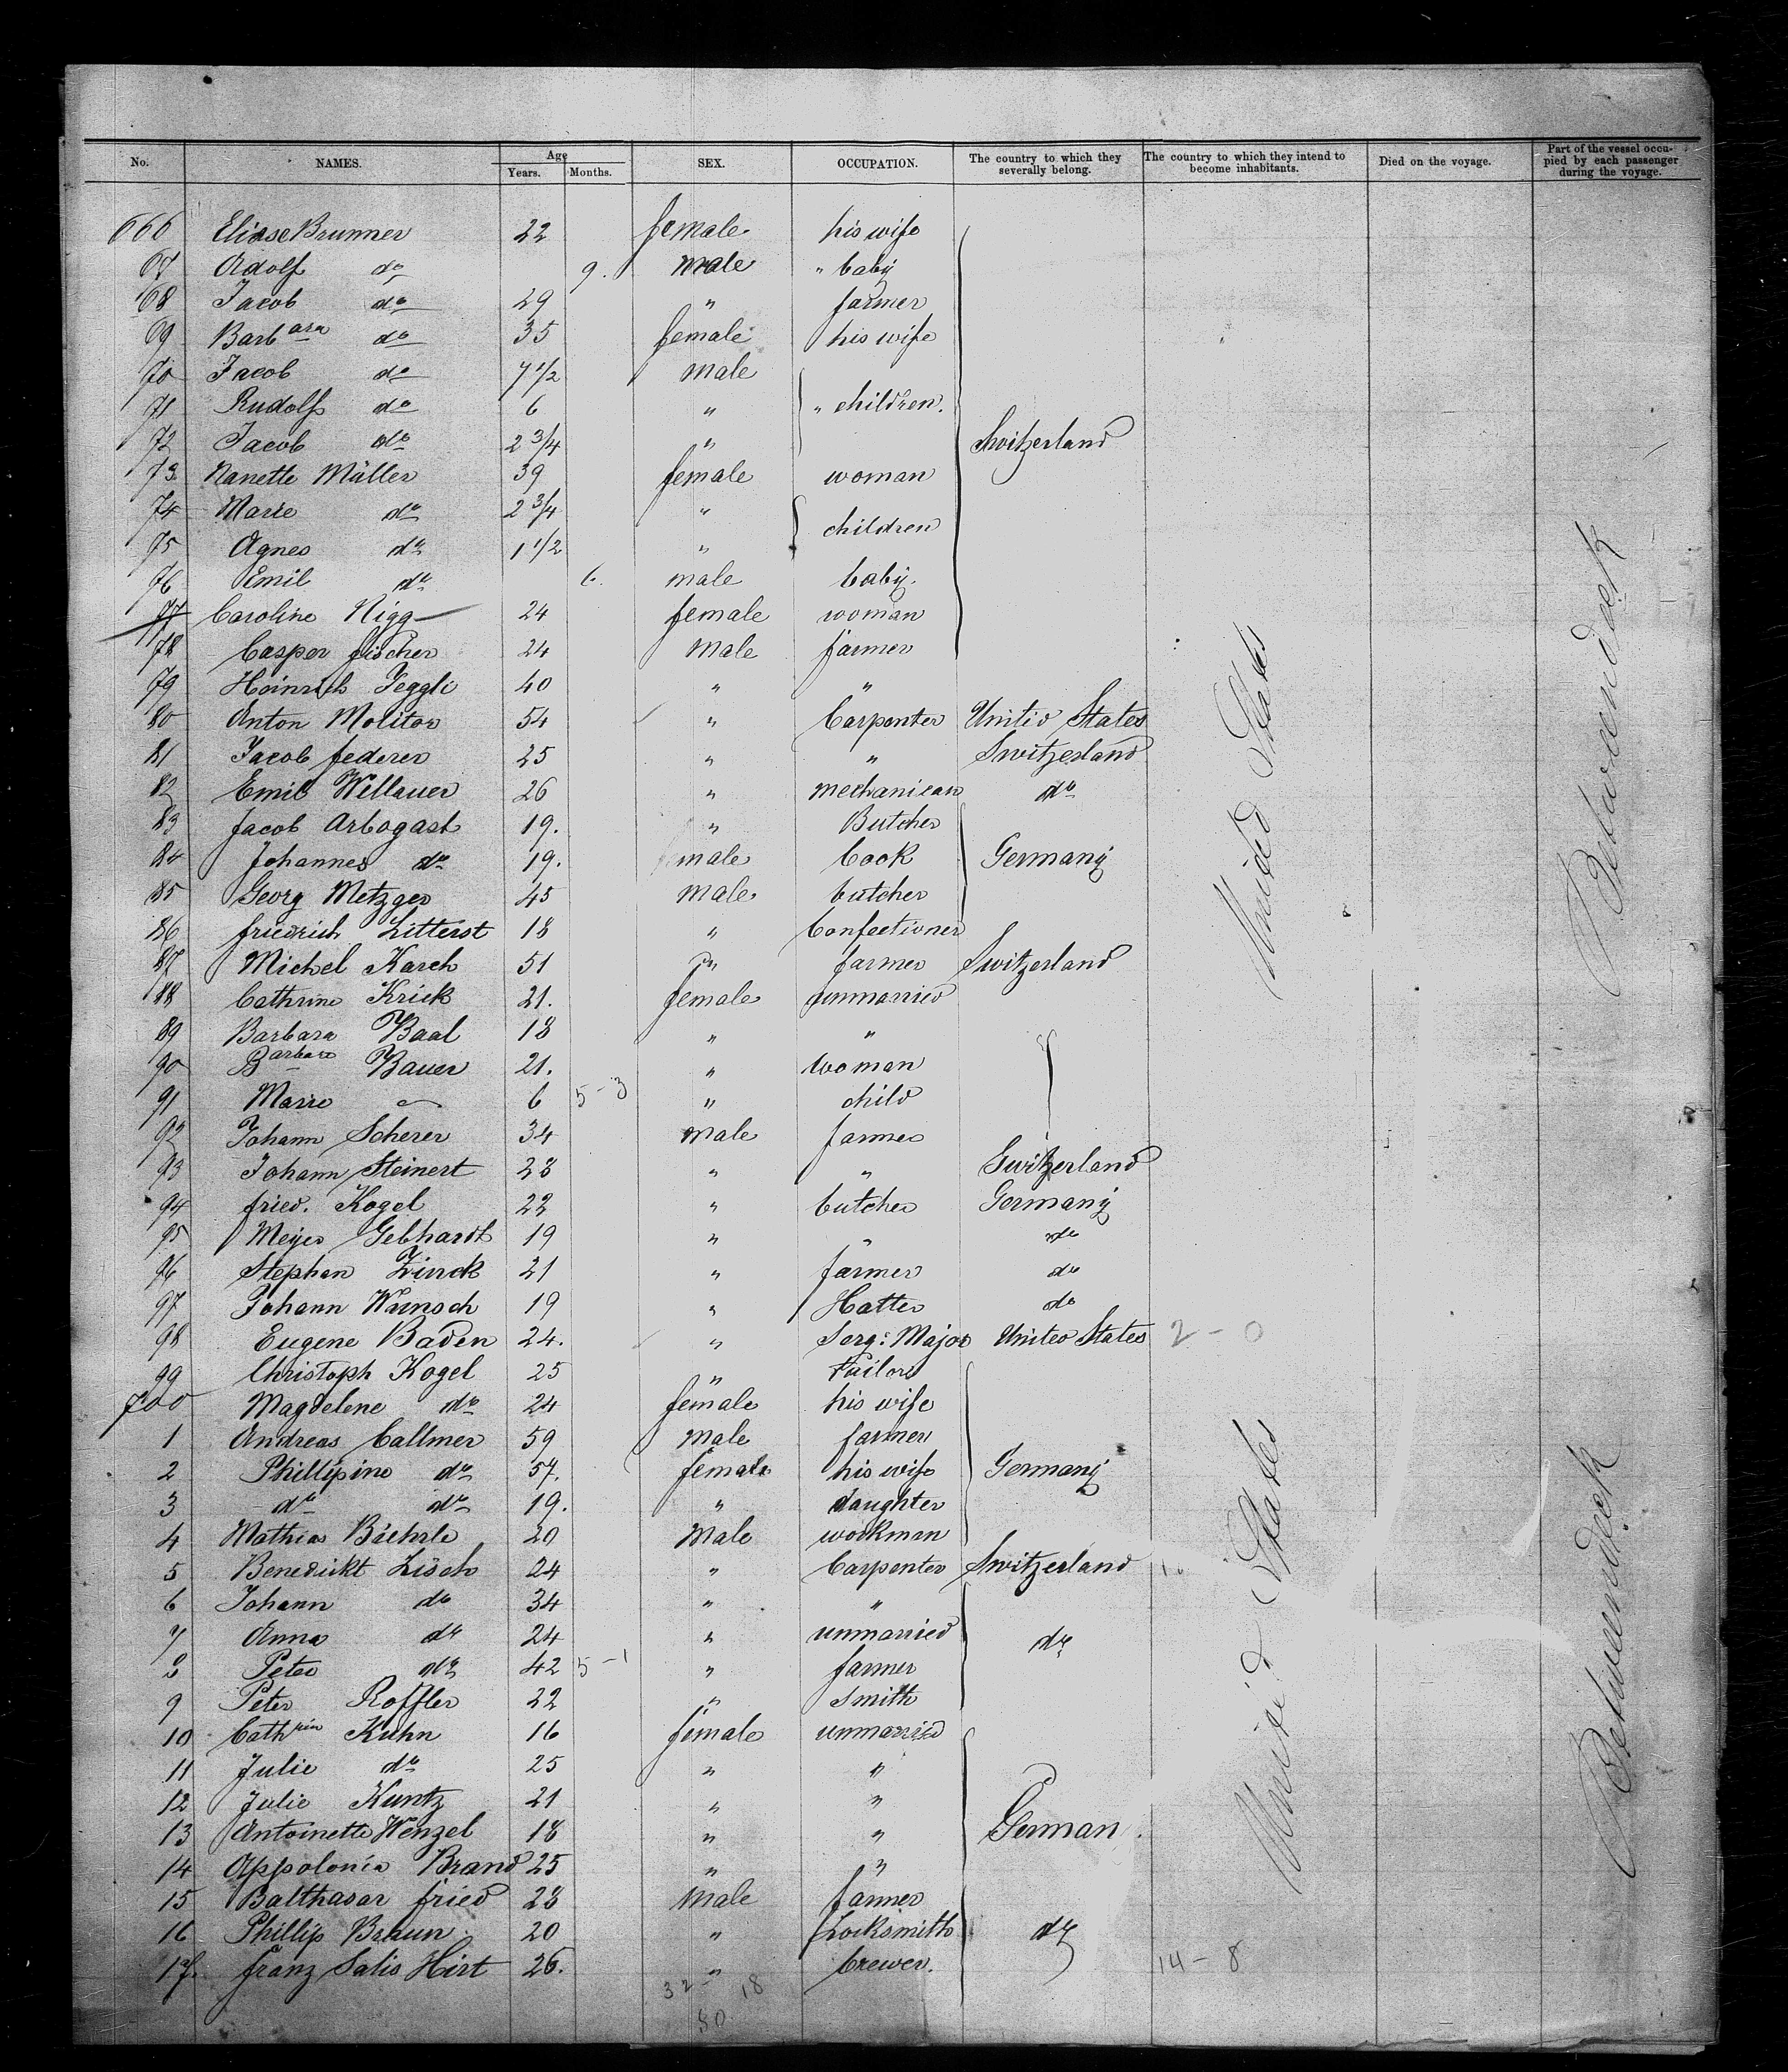 No. NAMES. Age Years. Months. SEX. OCCUPATION. The country to which they severally belong. The country to which they intend to become inhabitants. Died on the voyage. Part of the vessel occupied by each passenger during the voyage.
666 Eliase Brunner 22 female his wife
67 Adolf do 9. male " baby
68 Jacob do 29 " farmer
69 Barbara do 35 female his wife
70 Jacob do 7 1/2 male
71 Rudolf do 6 " " children.
72 Jacob do 2 3/4 " Switzerland
73 Nanette Müller 39 female woman
74 Marie do 2 3/4 " children
75 Agnes do 1 1/2 "
76 Emil do 6. male baby.
77 Caroline Nigg 24 female woman
78 Casper Fischer 24 male farmer
79 Heinrich Jeggli 40 " "
80 Anton Molitor 54 " Carpenter United States
81 Jacob Federer 25 " " Switzerland
82 Emil Wellauer 26 " mechanican do
83 Jacob Arbogast 19. " Butcher
84 Johannes do 19. male Cook Germany
85 Georg Metzger 45 male butcher
86 Friedrich Litterst 18 " Confectioner
87 Michel Karch 51 " farmer Switzerland
88 Cathrine Krick 21. female unmarried
89 Barbara Baal 18 " "
90 Barbara Bauer 21. " woman
91 Marie 6 5-3 " child
92 Johann Scherer 34 male farmer
93 Johann Steinert 28 " " Switzerland
94 Fried. Kogel 22 " butcher Germany
95 Meyer Gebhardt 19 " " do
96 Stephan Zinck 21 " farmer do
97 Johann Wunsch 19 " Hatter do
98 Eugene Baden 24. " Serg: Major United States 2-0
99 Christoph Kogel 25 " Tailor
700 Magdelene do 24 female his wife
1 Andreas Callmer 59 male farmer
2 Phillipine do 57. female his wife Germany
3 do do 19. " daughter
4 Mathias Bäehrle 20 male workman
5 Benedickt Lisch 24 " Carpenter Switzerland
6 Johann do 34 " "
7 Anna do 24 " unmarried do
8 Peter do 42 5-1 " farmer
9 Peter Roffler 22 " Smith
10 Cathrin Kuhn 16 female unmarried
11 Julie do 25 " "
12 Julie Kuntz 21 " "
13 Antoinette Wenzel 18 " " German
14 Appolonia Brand 25 " "
15 Balthasar Fried 28 male farmer
16 Phillip Braun 20 " Locksmith do
17. Franz Salis Hirt 26. " brewer. 14-8
32- 18
50
United States
United States
Betweendeck
Betweendeck